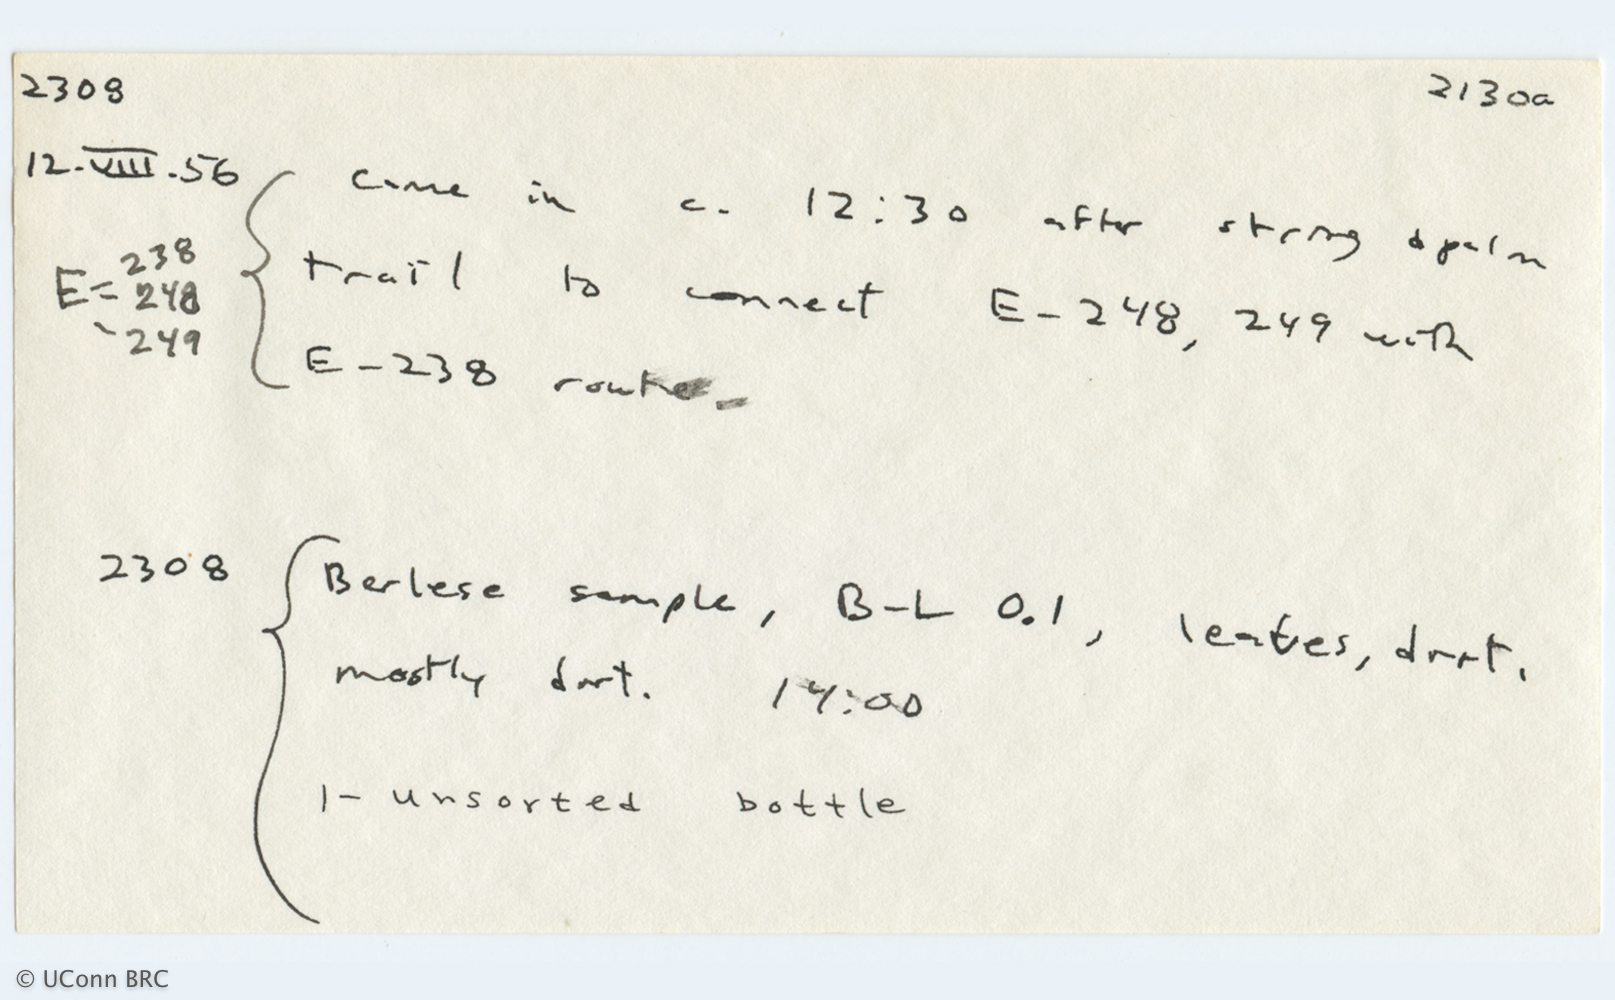 2308 2130a
12.VIII.56 Came in c. 12:30 after
trail to connect E-248, 249 with
E-238 route.
E= 238
248
249
2308 Berlese sample, B-L 0.1, leaves, dirt.
mostly dirt. 14:00
1- unsorted bottle
© UConn BRC